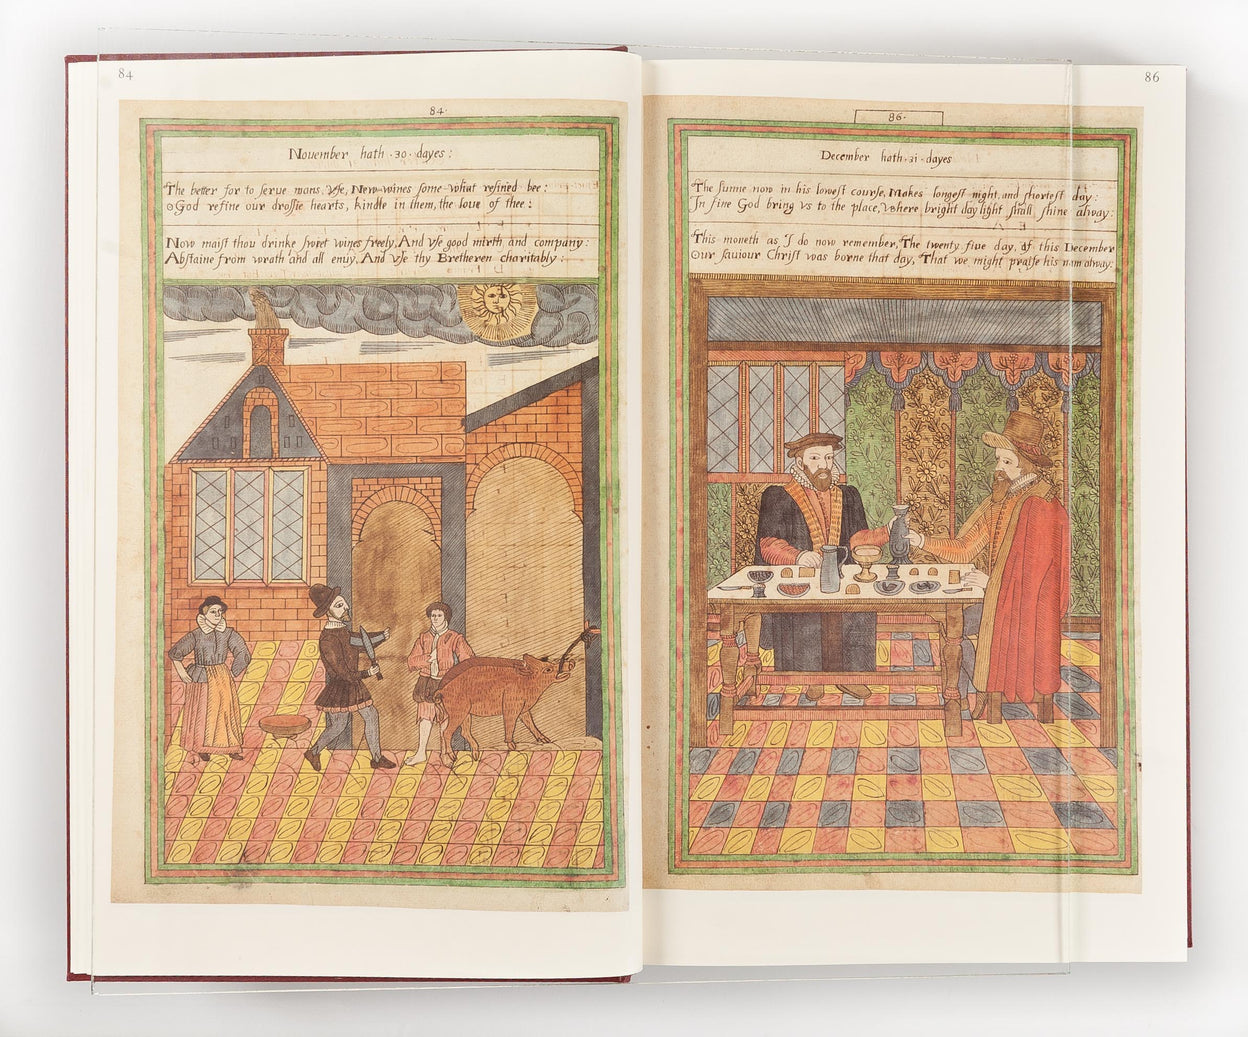 84
84·
Nouember hath ·30· dayes:
The better for to serue mans Vse, New wines some what refined bee:
O God refine our drossie hearts, kindle in them, the loue of thee:
Now maist thou drinke sweet wines freely, And vse good mirth and company:
Abstaine from wrath and all enuy, And Vse thy Bretheren charitably:
86
86·
December hath ·31· dayes
The sunne now in his lowest course, Makes longest night, and shortest day:
In fine God bring vs to the place, Where bright day light shall shine alway:
This moneth as I do now remember, The twenty fiue day, of this December
Our sauiour Christ was borne that day, That we might praise his nam alway: